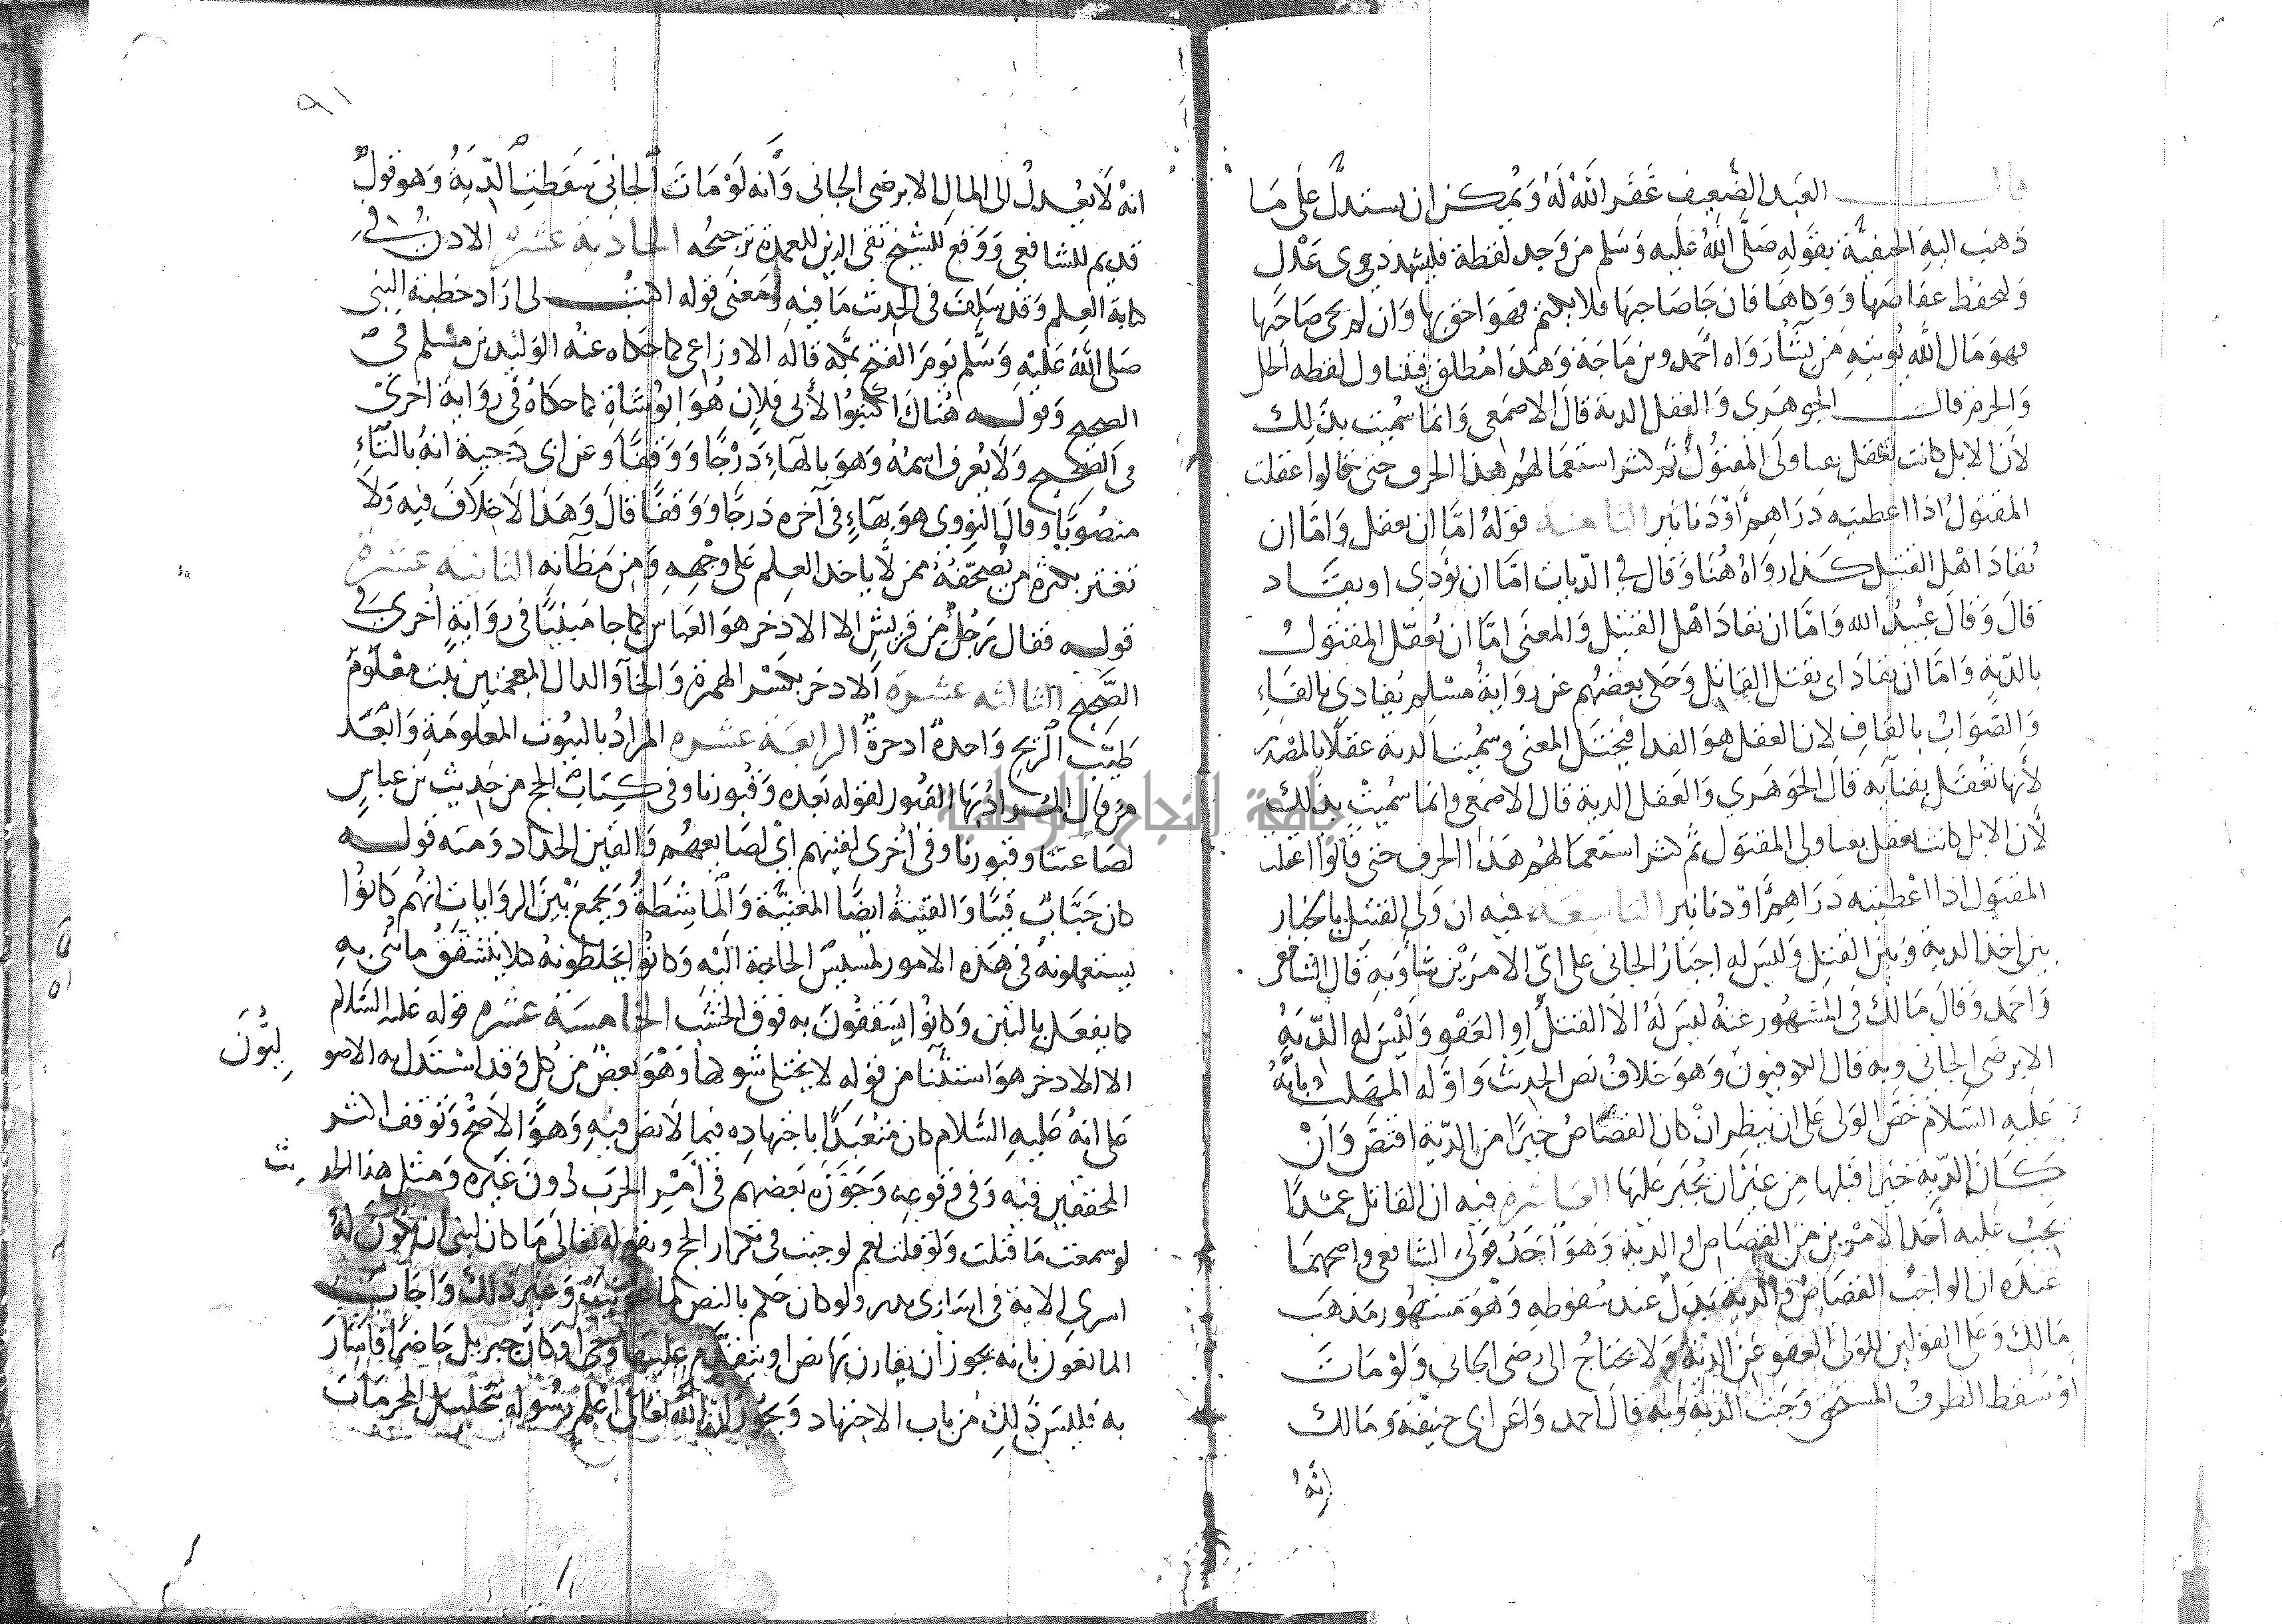 قال العبد الضعيف غفر الله له ويمكن ان يستدل على ما
ذهب اليه الحنفية بقوله صلى الله عليه وسلم من وجد لقطة فليشهد ذوى عدل
وليحفظ عفاصها ووكاها فان جا صاحبها فلا يكتم فهو احق بها وان لم يجى صاحبها
فهو مال الله يوتيه من يشا رواه أحمد وبن ماجة وهذا مطلق فيتناول لقطه الحل
والحرم قال الجوهري والعقل الدية قال الاصمعى وانما سميت بذلك
لأن الابل كانت تعقل بفنا ولى المقتول ثم كثر استعمالهم هذا الحرف حتى قالوا عقلت
المقتول اذا اعطيته دراهم أو دنانير الثامنة قوله امّا ان يعقل وامّا ان
يُقاد اهل القتيل كذا رواه هنا وقال في الديات امّا ان يؤدى او يقاد
قال وقال عبيد الله وامّا ان يقاد اهل القتيل والمعنى امّا ان يُعقل المقتول
بالدّية وامّا ان يقاد اى يقتل القاتل وحكى بعضهم عن رواية مسلم يفادى بالفاء
والصّواب بالقاف لان العقل هو الفدا فيختل المعنى وسُميت الدية عقلا بالمصدر
لأنها تُعقل بفنائه قال الجوهري والعقل الدية قال الاصمعى وانما سميت بذلك
لأن الابل كانت تعقل بفنا ولى المقتول ثم كثر استعمالهم هذا الحرف حتى قالوا عقلت
المقتول اذا اعطيته دراهم او دنانير التاسعة فيه ان ولى القتيل بالخيار
بين اخذ الدية وبين القتل وليس له اجبار الجانى على اىّ الامرين شا وبه قال الشافعى
واحمد وقال مالك فى المشهور عنه ليس له الا القتل او العفو وليس له الدّية
الا برضى الجانى وبه قال الكوفيون وهو خلاف نص الحديث واوّله المهلب بانه
عليه السلام حض الولى على ان ينظر ان كان القصاص خيرا من الدّية اقتص وان
كان الدّية خيرا قبلها من غير ان يُجبر عليها العاشرة فيه ان القاتل عمدًا
يجب عليه أحد الامرين من القصاص او الدية وهو أحد قولى الشافعى واصحهما
عنده ان الواجب القصاص والدية بدل عند سقوطه وهو مشهور مذهب
مالك وعلى القولين للولى العفو عن الدية ولا يحتاج الى رضى الجانى ولو مات
أو سقط الطرف المستحق وجبت الدية وبه قال احمد وعن ابى حنيفة ومالك
انّهُ
٩١
انهُ لا يعدل الى المال الا برضى الجانى وأنه لو مات الجانى سقطت الدّية وهو قول
قديم للشافعى ووقع للشيخ تقى الدين للعمدة ترجيحه الحادية عشرة الاذن في
كتابة العلم وقد سلف فى الحديث ما فيه ومعنى قوله اكتب لى اراد خطبة النبى
صلى الله عليه وسلم يوم الفتح بمكة قاله الاوزاعى كما حكاه عنه الوليد بن مسلم فى
الصحيح وقوله هناك اكتبوا لأبى فلان هو ابو شاة كما حكاه فى رواية اخرى
فى الصحيح ولا يعرف اسمه وهو بالهاء دَرْجًا ووقفًا وعن ابن دحية انه بالتاء
منصوبا وقال النووى هو بهاء فى آخره درجًا ووقفًا قال وهذا لا خلاف فيه ولا
تغتر بكثرة من يُصَحِّفه ممن لا ياخذ العلم على وجهه ومن مظانه الثانية عشرة
قوله فقال رجل من قريش الا الاذخر هو العباس كما جا مبينًا فى رواية اخرى فى
الصّحيح الثالثه عشرة الاذخر بكسر الهمزة والخا والذال المعجمتين نبت معلوم
طيّب الريح واحدهُ اذخرةٌ الرابعة عشره المراد بالبيوت المعلومة وابعد
من قال المراد بها القبور لقوله بعده وقبورنا وفى كتاب الحج من حديث بن عباس
لصاغتنا وقبورنا وفى اخرى لقينهم اى لصايغهم والقين الحداد ومنه قوله
كان خبّاب قينا والقينة ايضا المغنيّة والماشطة ويجمع بين الروايات انهم كانوا
يستعملونه فى هذه الامور لمسيس الحاجة اليه وكانوا يخلطونه لئلا يتشقق ما بُنى به
كما يفعل بالتبن وكانوا يسقفون به فوق الخشب الخامسة عشره قوله عليه السلام
الا الاذخر هو استثنا من قوله لا يختلى شوكها وهو بعض من كل وقد استدل به الاصو
ليُّونَ
على انه عليه السّلام كان متعبدًا باجتهاده فيما لا نص فيه وهو الاصح وتوقف اكثر
المحققين فيه وفى وقوعه وجوّزه بعضهم فى أمر الحرب دون غيره ومثل هذا الحد
يث
لو سمعت ما قتلت ولو قلت نعم لوجبت فى تكرار الحج وبقوله تعالى ما كان لنبى ان يكون له
اسرى الاية فى اسارى بدر ولو كان حكم بالنص لما عوتب وغير ذلك واجاب
المانعون بانه يجوز أن يقارن بها نص او يتقدم عليها وحى او كان جبريل حاضرا فاشار
به فليس ذلك من باب الاجتهاد ويجوز ان الله تعالى اعلم رسوله بتحليل المحرمات
جامعة النجاح الوطنية